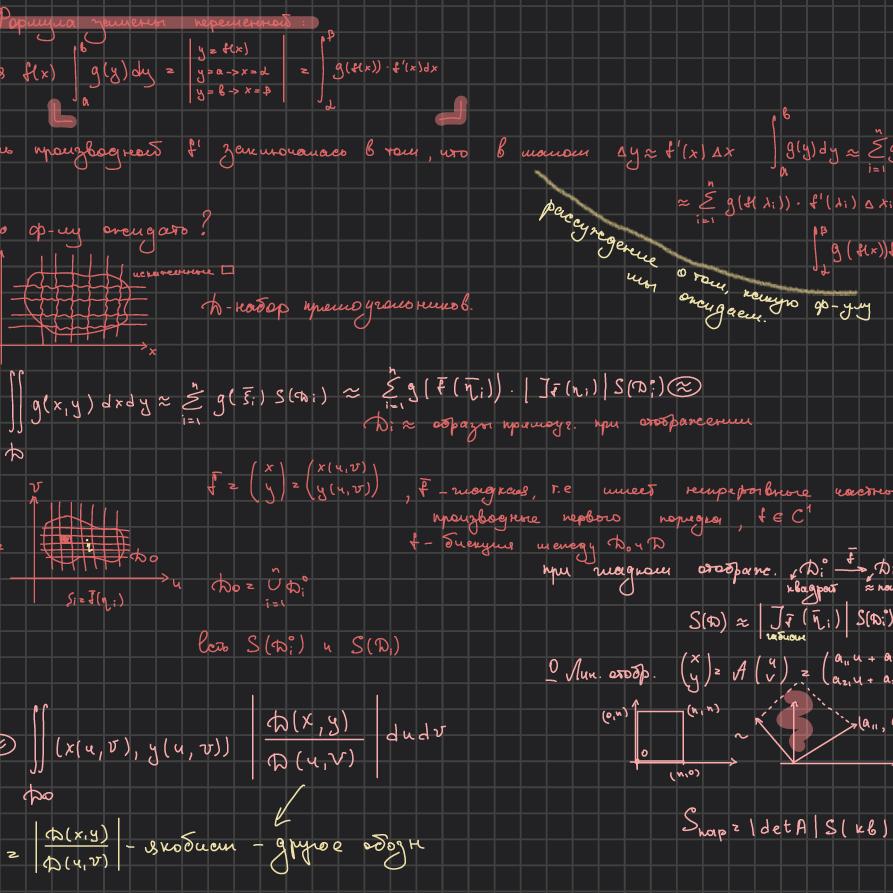 Формула замены переменной:
f(x) ∫_a^b g(y)dy = | y = f(x) y=a → x=α y=b → x=β | = ∫_α^β g(f(x))·f'(x)dx
производной f' заключалась в том, что в малом Δy ≈ f'(x) Δx ∫_a^b g(y)dy ≈ Σ_{i=1}^n g
≈ Σ_{i=1}^n g(f(λi))·f'(λi) Δxi
∫_α^β g(f(x))f
рассуждение о том, какую ф-улу
мы ожидаем.
ф-лу ожидать?
искаженные □
D-набор прямоугольников.
x
∬_D g(x,y) dxdy ≈ Σ_{i=1}^n g(ξ̄i) S(Di) ≈ Σ_{i=1}^n g(f̄(η̄i))·|J_f̄(ηi)|S(Di°) ≈
Di ≈ образы прямоуг. при отображении
f̄ = (x y) = (x(u,v) y(u,v)), f̄-гладкая, т.е имеет непрерывные частны
производные первого порядка, f ∈ C¹
f - биекция между D0 и D
v
i
D0
u
ξi=f̄(ηi)
D0 = ∪_{i=1}^n Di°
при гладком отображ. Di° →^f̄ D
квадрат
S(D) ≈ |J_f̄(η̄i)| S(Di°
якобиан
есть S(Di°) и S(Di)
0 Лин. отобр. (x y) = A (u v) = (a11u + a a21u + a
(0,n) (n,n)
0
(n,0)
~
(a11,
≈ ∬_D0 (x(u,v), y(u,v)) |D(x,y)/D(u,v)| dudv
Sпар = |detA| S(кв)
= |D(x,y)/D(u,v)| - якобиан - другое обозн